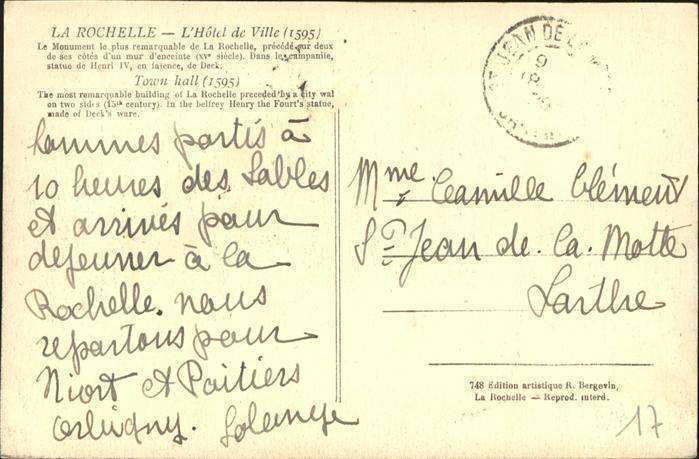 LA ROCHELLE — L'Hôtel de Ville (1595)
Le Monument le plus remarquable de La Rochelle, précédé sur deux
de ses côtés d'un mur d'enceinte (XVe siècle). Dans le campanile,
statue de Henri IV, en faïence, de Deck.
Town hall (1595)
The most remarkable building of La Rochelle preceded by a city wal
on two sides (15th century). In the belfrey Henry the Fourt's statue,
made of Deck's ware.
sommes partis à
10 heures des Sables
et arrivés pour
dejeuner à la
Rochelle. nous
repartons pour
Niort et Poitiers
Solange
JEAN DE LA
9
Mme Camille Clément
St Jean de. La. Motte
Sarthe
748 Edition artistique R. Bergevin,
La Rochelle — Reprod. interd.
17